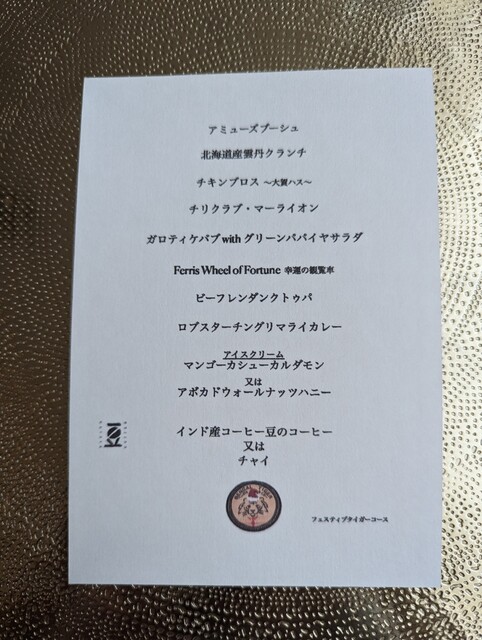 アミューズブーシュ
北海道産雲丹クランチ
チキンブロス ～大賀ハス～
チリクラブ・マーライオン
ガロティケバブ with グリーンパパイヤサラダ
Ferris Wheel of Fortune 幸運の観覧車
ビーフレンダンクトゥパ
ロブスターチングリマライカレー
アイスクリーム
マンゴーカシューカルダモン
又は
アボカドウォールナッツハニー
インド産コーヒー豆のコーヒー
又は
チャイ
フェスティブタイガーコース